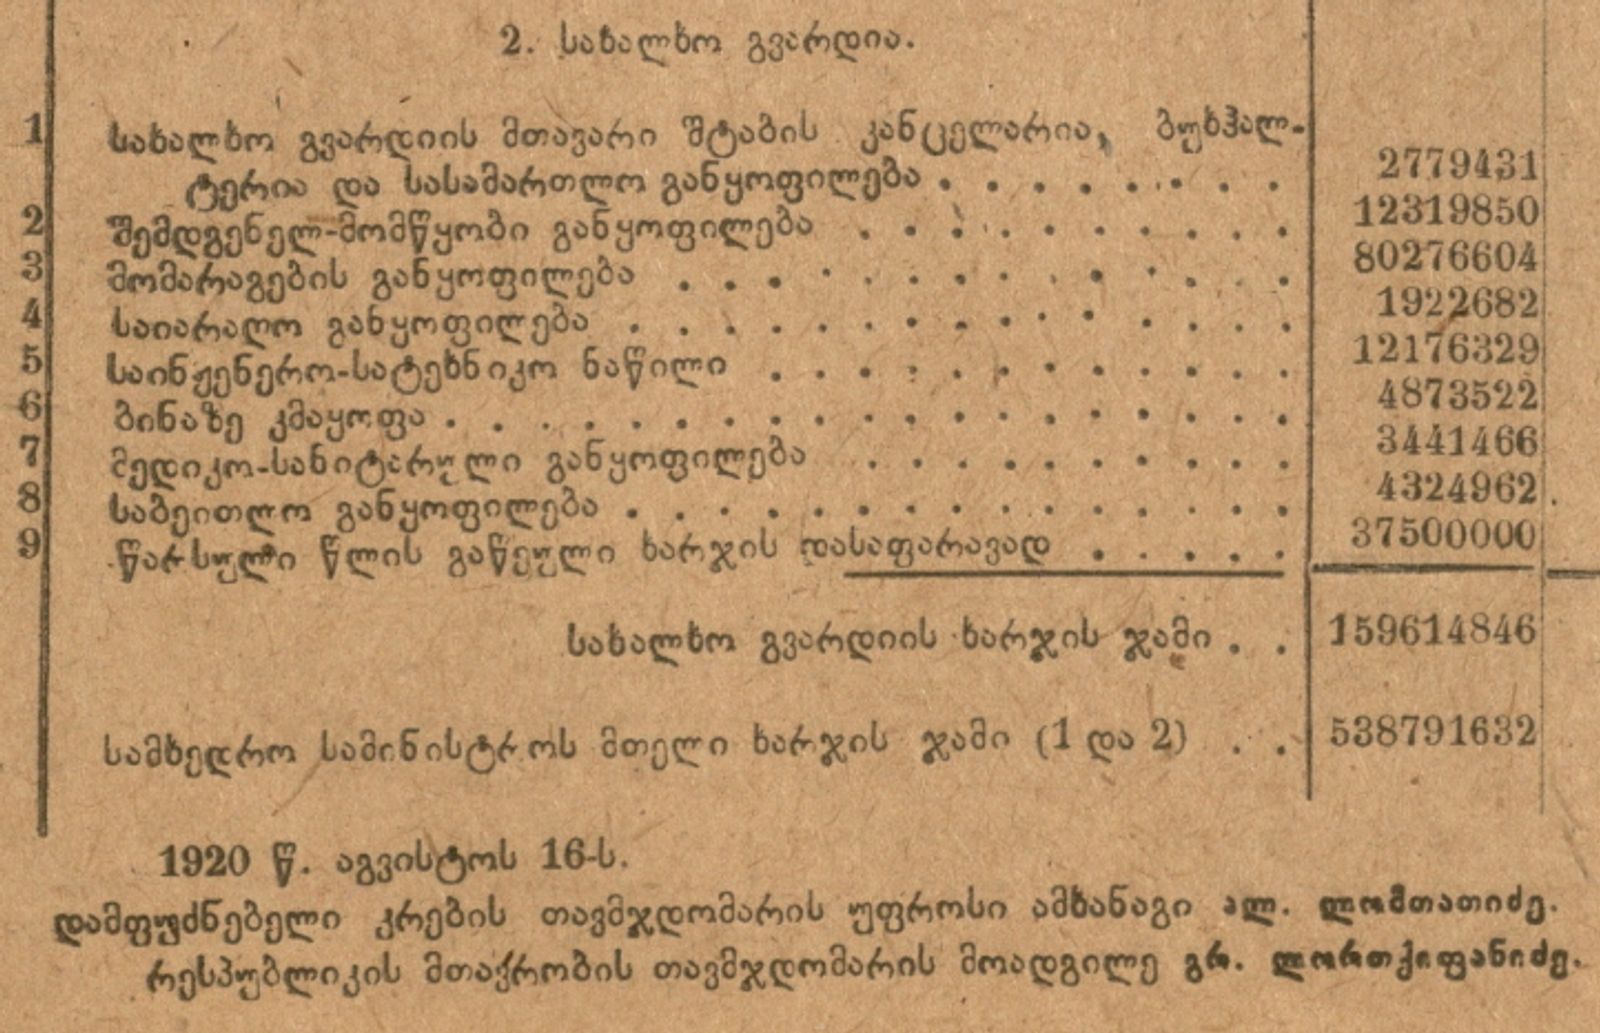 2. სახალხო გვარდია.
1 სახალხო გვარდიის მთავარი შტაბის კანცელარია, ბუხჰალ-
ტერია და სასამართლო განყოფილება . . . . . . . . 2779431
2 შემდგენელ-მომწყობი განყოფილება . . . . . . . . . . 12319850
3 მომარაგების განყოფილება . . . . . . . . . . . . . 80276604
4 საიარაღო განყოფილება . . . . . . . . . . . . . . . 1922682
5 საინჟენერო-სატეხნიკო ნაწილი . . . . . . . . . . . . 12176329
6 ბინაზე კმაყოფა . . . . . . . . . . . . . . . . . . . 4873522
7 მედიკო-სანიტარული განყოფილება . . . . . . . . . . 3441466
8 საბეითლო განყოფილება . . . . . . . . . . . . . . . 4324962
9 წარსული წლის გაწეული ხარჯის დასაფარავად . . . . . 37500000
სახალხო გვარდიის ხარჯის ჯამი . . 159614846
სამხედრო სამინისტროს მთელი ხარჯის ჯამი (1 და 2) . . 538791632
1920 წ. აგვისტოს 16-ს.
დამფუძნებელი კრების თავმჯდომარის უფროსი ამხანაგი ალ. ლომთათიძე.
რესპუბლიკის მთაქრობის თავმჯდომარის მოადგილე გრ. ლორთქიფანიძე.